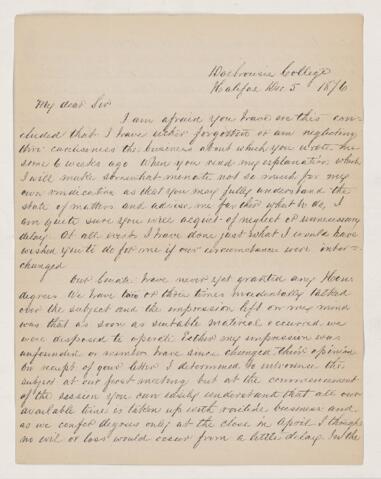 Dalhousie College
Halifax Dec 5 1876
My dear Sir
I am afraid you have ere this con-
cluded that I have either forgotten or am neglecting
thro' carelessness the business about which you wrote me
some 6 weeks ago When you read my explanation which
I will make somewhat minute not so much for my
own vindication as that you may fully understand the
state of matters and advise me further what to do, I
am quite sure you will acquit of neglect or unnecessary
delay. At all events I have done just what I would have
wished you to do for me if our circumstances were inter-
changed
Our Senate have never yet granted any Hon
degrees We have two or three times incidentally talked
over the subject and the impression left on my mind
was that as soon as suitable material occurred we
were disposed to operate Either my impression was
unfounded or members have since changed their opinion
On receipt of your letter I determined to introduce the
subject at our first meeting but at the commencement
of the session you can easily understand that all our
available time is taken up with routine business and
as we confer degrees only at the close in April I thought
no evil or loss would occur from a little delay. In the